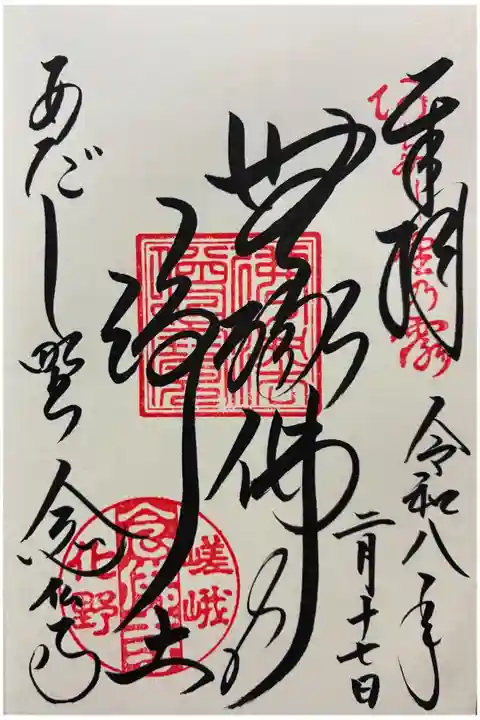 奉拝
令和八年
二月十七日
無縁佛の
浄土
嵯峨
念佛寺
化野
あだし野 念仏寺